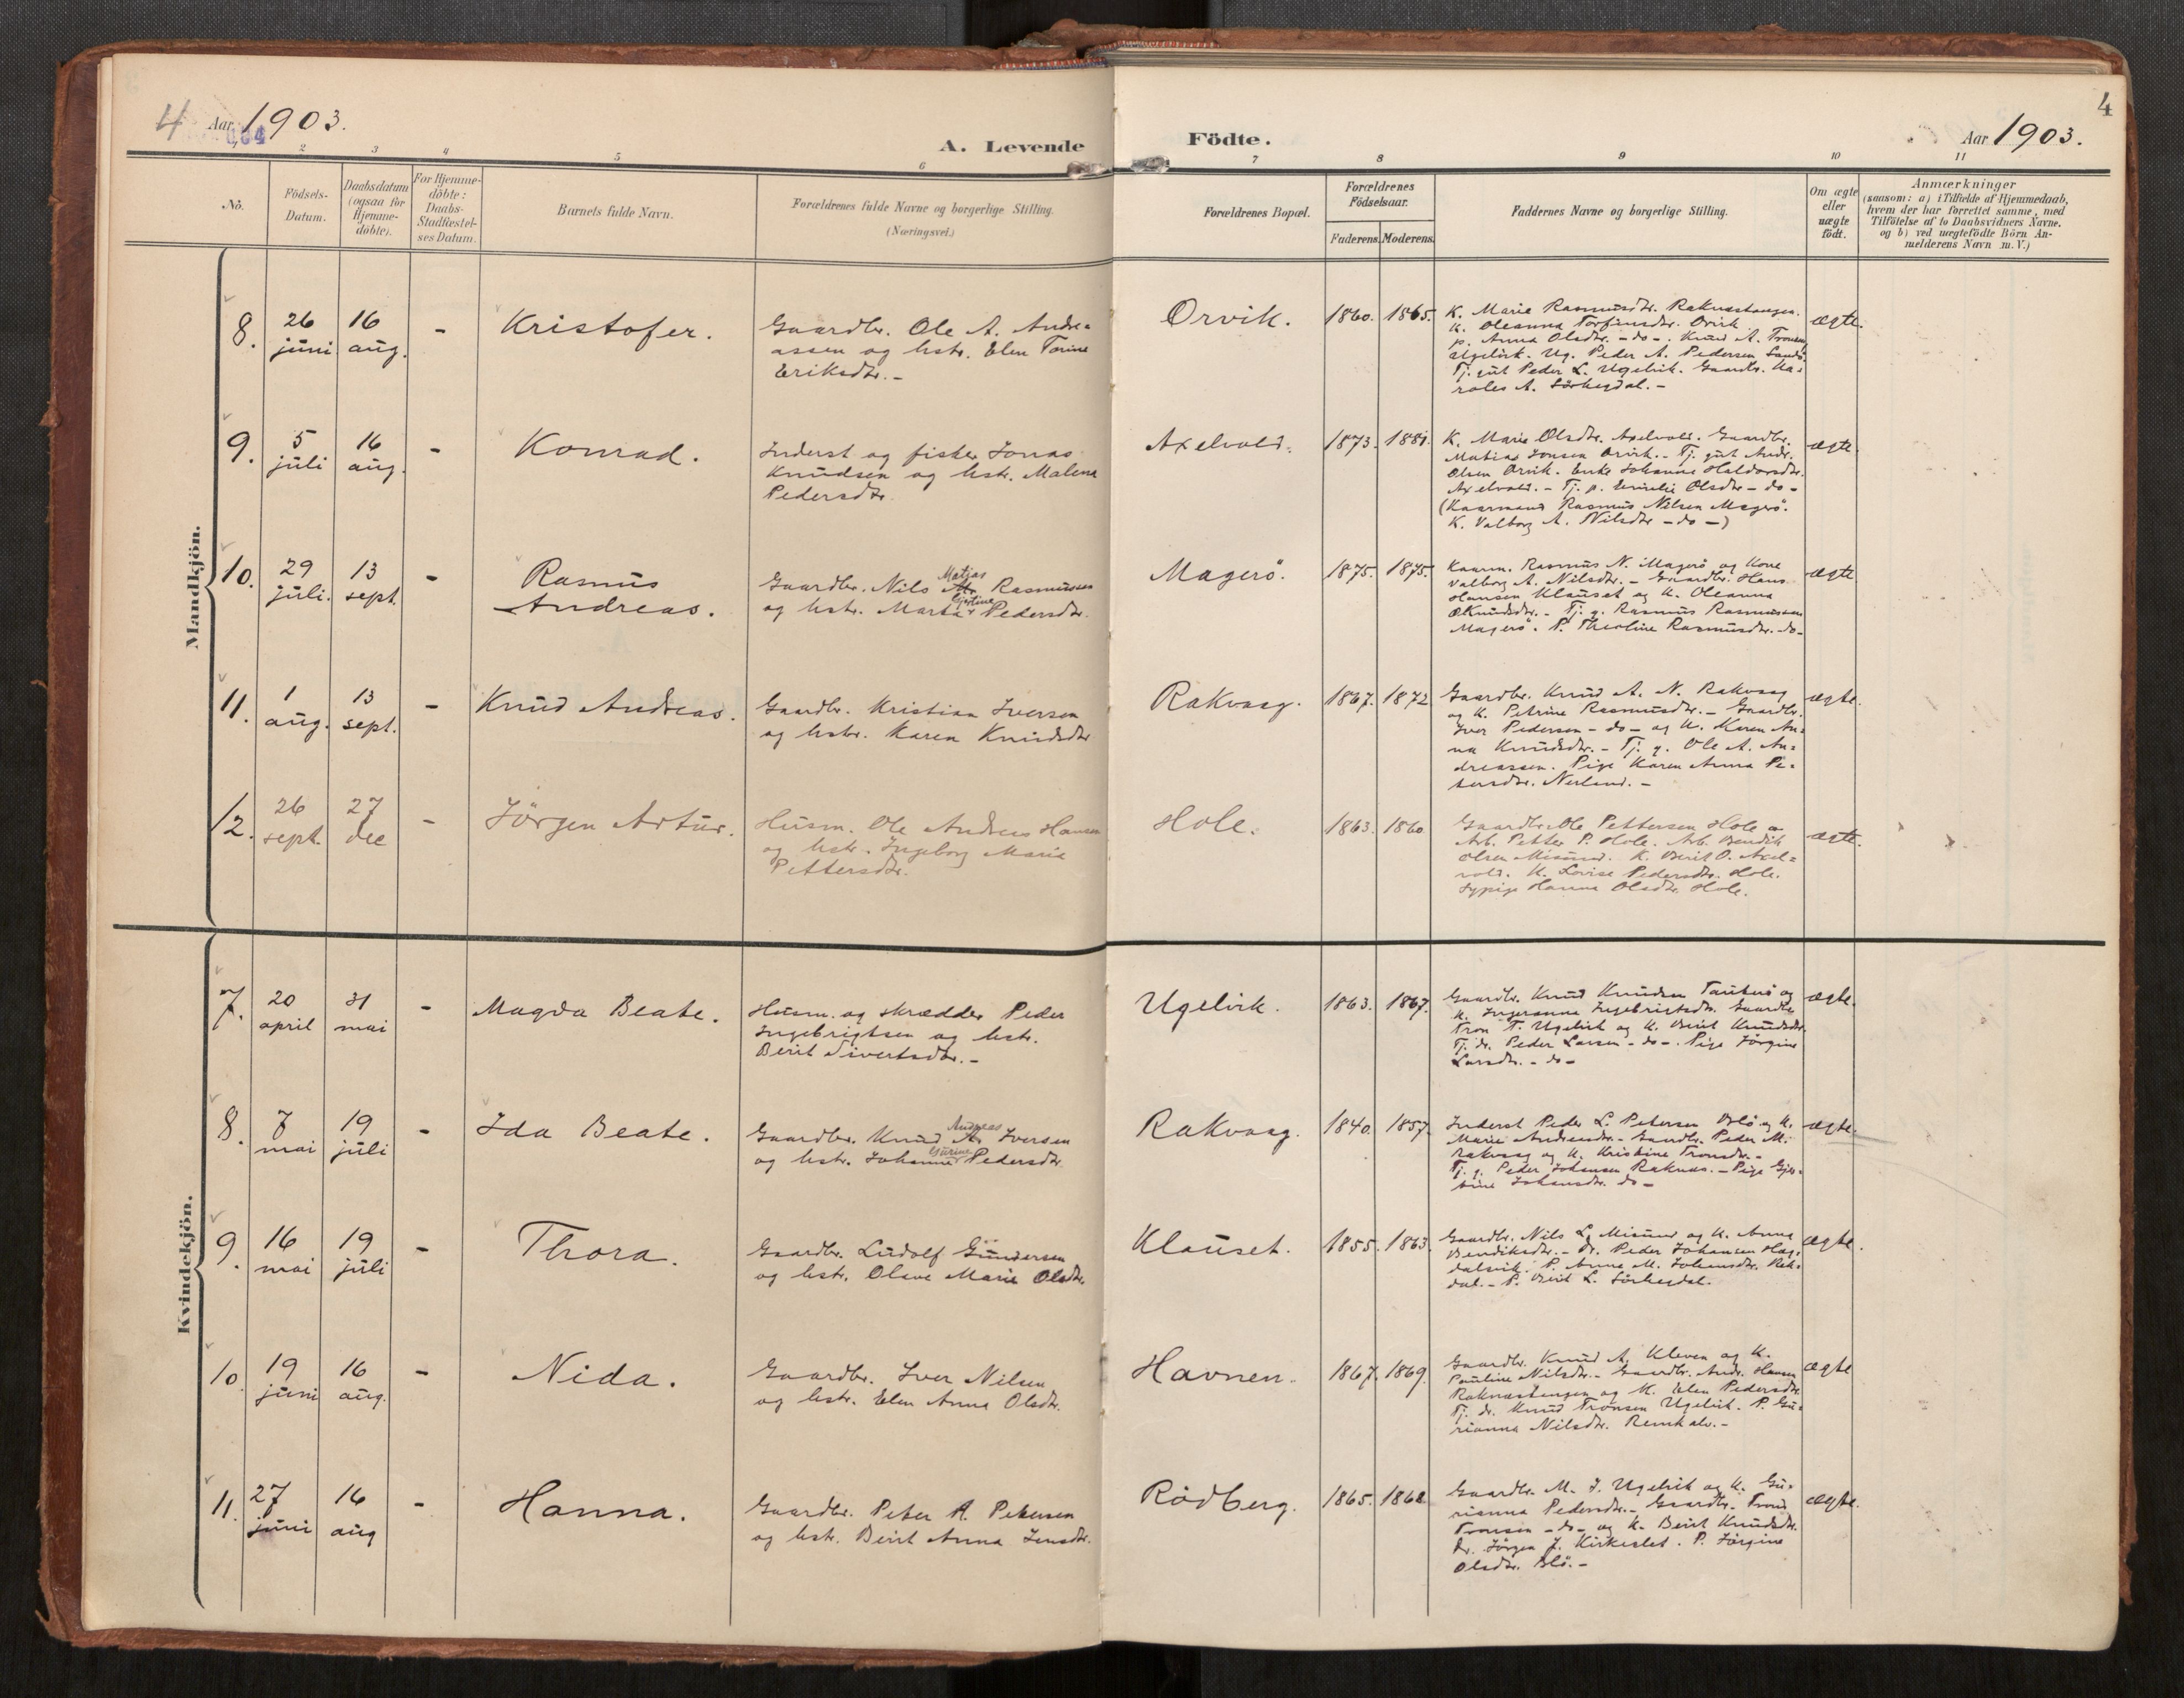 4 Aar 1903.
004
A. Levende
Födte.
Aar 1903.
4
2 3 4 5 6 7 8 9 10 11
No.
Födsels-
Datum.
Daabsdatum
(ogsaa for
Hjemme-
döbte).
For Hjemme-
döbte:
Daabs-
Stadfæstel-
ses Datum.
Barnets fulde Navn.
Forældrenes fulde Navne og borgerlige Stilling.
(Næringsvei.)
Forældrenes Bopæl.
Forældrenes
Födselsaar.
Faderens. Moderens.
Faddernes Navne og borgerlige Stilling.
Om ægte
eller
uægte
födt.
Anmærkninger
(saasom: a) i Tilfælde af Hjemmedaab,
hvem der har forrettet samme, med
Tilföielse af to Daabsvidners Navne,
og b) ved uægtefödte Börn An-
melderens Navn m. V.)
Mandkjön.
8.
26
juni
16
aug.
-
Kristofer.
Gaardbr. Ole A. Andre=
assen og hstr. Elen Torine
Eriksdtr. -
Orvik.
1860. 1865.
K. Marie Rasmusdtr. Raknestangen.
K. Oleanna Torfinsdtr. Orvik
p. Anna Olsdtr. - do -. Knud A. Tronsen
Ugelvik. Ug. Peder A. Pedersen Sandö
Tj. gut Peder L. Ugelvik. Gaardbr. Ka=
roles A. Sörheydal. -
ægte.
9.
5
juli
16
aug.
-
Konrad.
Inderst og fisker Jonas
Knudsen og hstr. Malene
Pedersdtr.
Axelvold.
1873. 1881.
K. Marie Olsdtr. Axelvold. Gaardbr.
Matias Jonsen Orvik. - Tj. gut Andr.
Olsen Orvik. Enke Johanne Haldorsdtr.
Axelvold. - Tj. p. Emelie Olsdtr - do -
(Kaarmand Rasmus Nilsen Magerö.
K. Valborg A. Nilsdtr - do -)
ægte.
10.
29
juli.
13
sept.
-
Rasmus
Andreas.
Matias
Gaardbr. Nils M. Rasmussen
Gjertine
og hstr. Marta Pedersdtr.
Magerö.
1875. 1875.
Kaarm. Rasmus N. Magerö og Kone
Valborg A. Nilsdtr. - Gaardbr. Hans
Hansen Klauset og K. Oleanna
Knudsdtr. - Tj. g. Rasmus Rasmussen
Magerö. P. Theoline Rasmusdtr. - do -
ægte
11.
1
aug.
13
sept.
-
Knud Andreas.
Gaardbr. Kristian Iversen
og hstr. Karen Knudsdtr
Rakvaag.
1867. 1872
Gaardbr. Knud A. N. Rakvaag
og K. Petrine Rasmusdtr. - Gaardbr.
Iver Pedersen - do - og K. Karen An=
na Knudsdtr. - Tj. g. Ole A. An=
dreassen. Pige Karen Anna Pe=
tersdtr. Nerland. -
ægte.
12.
26
sept.
27
dec
-
Jörgen Artur.
Husm. Ole Andreas Hansen
og hstr. Ingeborg Marie
Pettersdtr.
Hole.
1863. 1860
Gaardbr. Ole Pettersen Hole og
Arb. Petter P. Hole. Arb. Bendik
Olsen Misund. K. Berit O. Axel=
vold. K. Lovise Pedersdtr. Hole.
Sypige Hanna Olsdtr. Hole.
ægte.
Kvindekjön.
7.
20
april
31
mai
-
Magda Beate.
Husm. og skrædder Peder
Ingebrigtsen og hstr.
Berit Sivertsdtr. -
Ugelvik.
1863. 1867.
Gaardbr. Knud Knudsen Tautrö og
K. Ingeranna Ingebrigtsdtr. Gaardbr.
Tron T. Ugelvik og K. Berit Knudsdtr.
Tj. dr. Peder Larsen - do -. Pige Jörgine
Larsdtr. - do -
ægte.
8.
7
mai
19
juli
-
Ida Beate.
Andreas
Gaardbr. Knud A. Iversen
Gurine
og hstr. Johanne Pedersdtr.
Rakvaag.
1840. 1857.
Inderst Peder L. Petersen Blö og K.
Marie Andreasdtr. - Gaardbr. Peder M.
Rakvaag og K. Kristine Tronsdtr. -
Tj. g. Peder Johansen Raknes. - Pige Gjer=
tine Johansdtr. do -
ægte.
9.
16
mai
19
juli
-
Thora.
Gaardbr. Ludolf Gundersen
og hstr. Olave Marie Olsdtr.
Klauset.
1855. 1863.
Gaardbr. Nils L. Misund og K. Anna
Bendiksdtr. - Dr. Peder Johansen Hag=
dalsvik. P. Anna M. Johansdtr. Rek=
dal. - P. Berit L. Sörheydal.
ægte.
10
19
juni
16
aug.
-
Nida.
Gaardbr. Iver Nilsen
og hstr. Elen Anna Olsdtr.
Havnen.
1867. 1869.
Gaardbr. Knud A. Kleven og K.
Pauline Nilsdtr. - Gaardbr. Andr. Hansen
Raknestangen og K. Elen Pedersdtr.
Tj. dr. Knud Tronsen Ugelvik. P. Gu=
rianna Nilsdtr. -
ægte
11.
27
juni
16
aug
-
Hanna.
Gaardbr. Peter A. Petersen
og hstr. Berit Anna Jensdtr.
Rödberg.
1865. 1862.
Gaardbr. M. J. Ugelvik og K. Gu=
rianna Pedersdtr. - Gaardbr. Trond
Tronsen - do - og K. Berit Knudsdtr.
Dr. Jörgen J. Kirkeslet. P. Jörgine
Olsdtr. Blö. -
ægte.